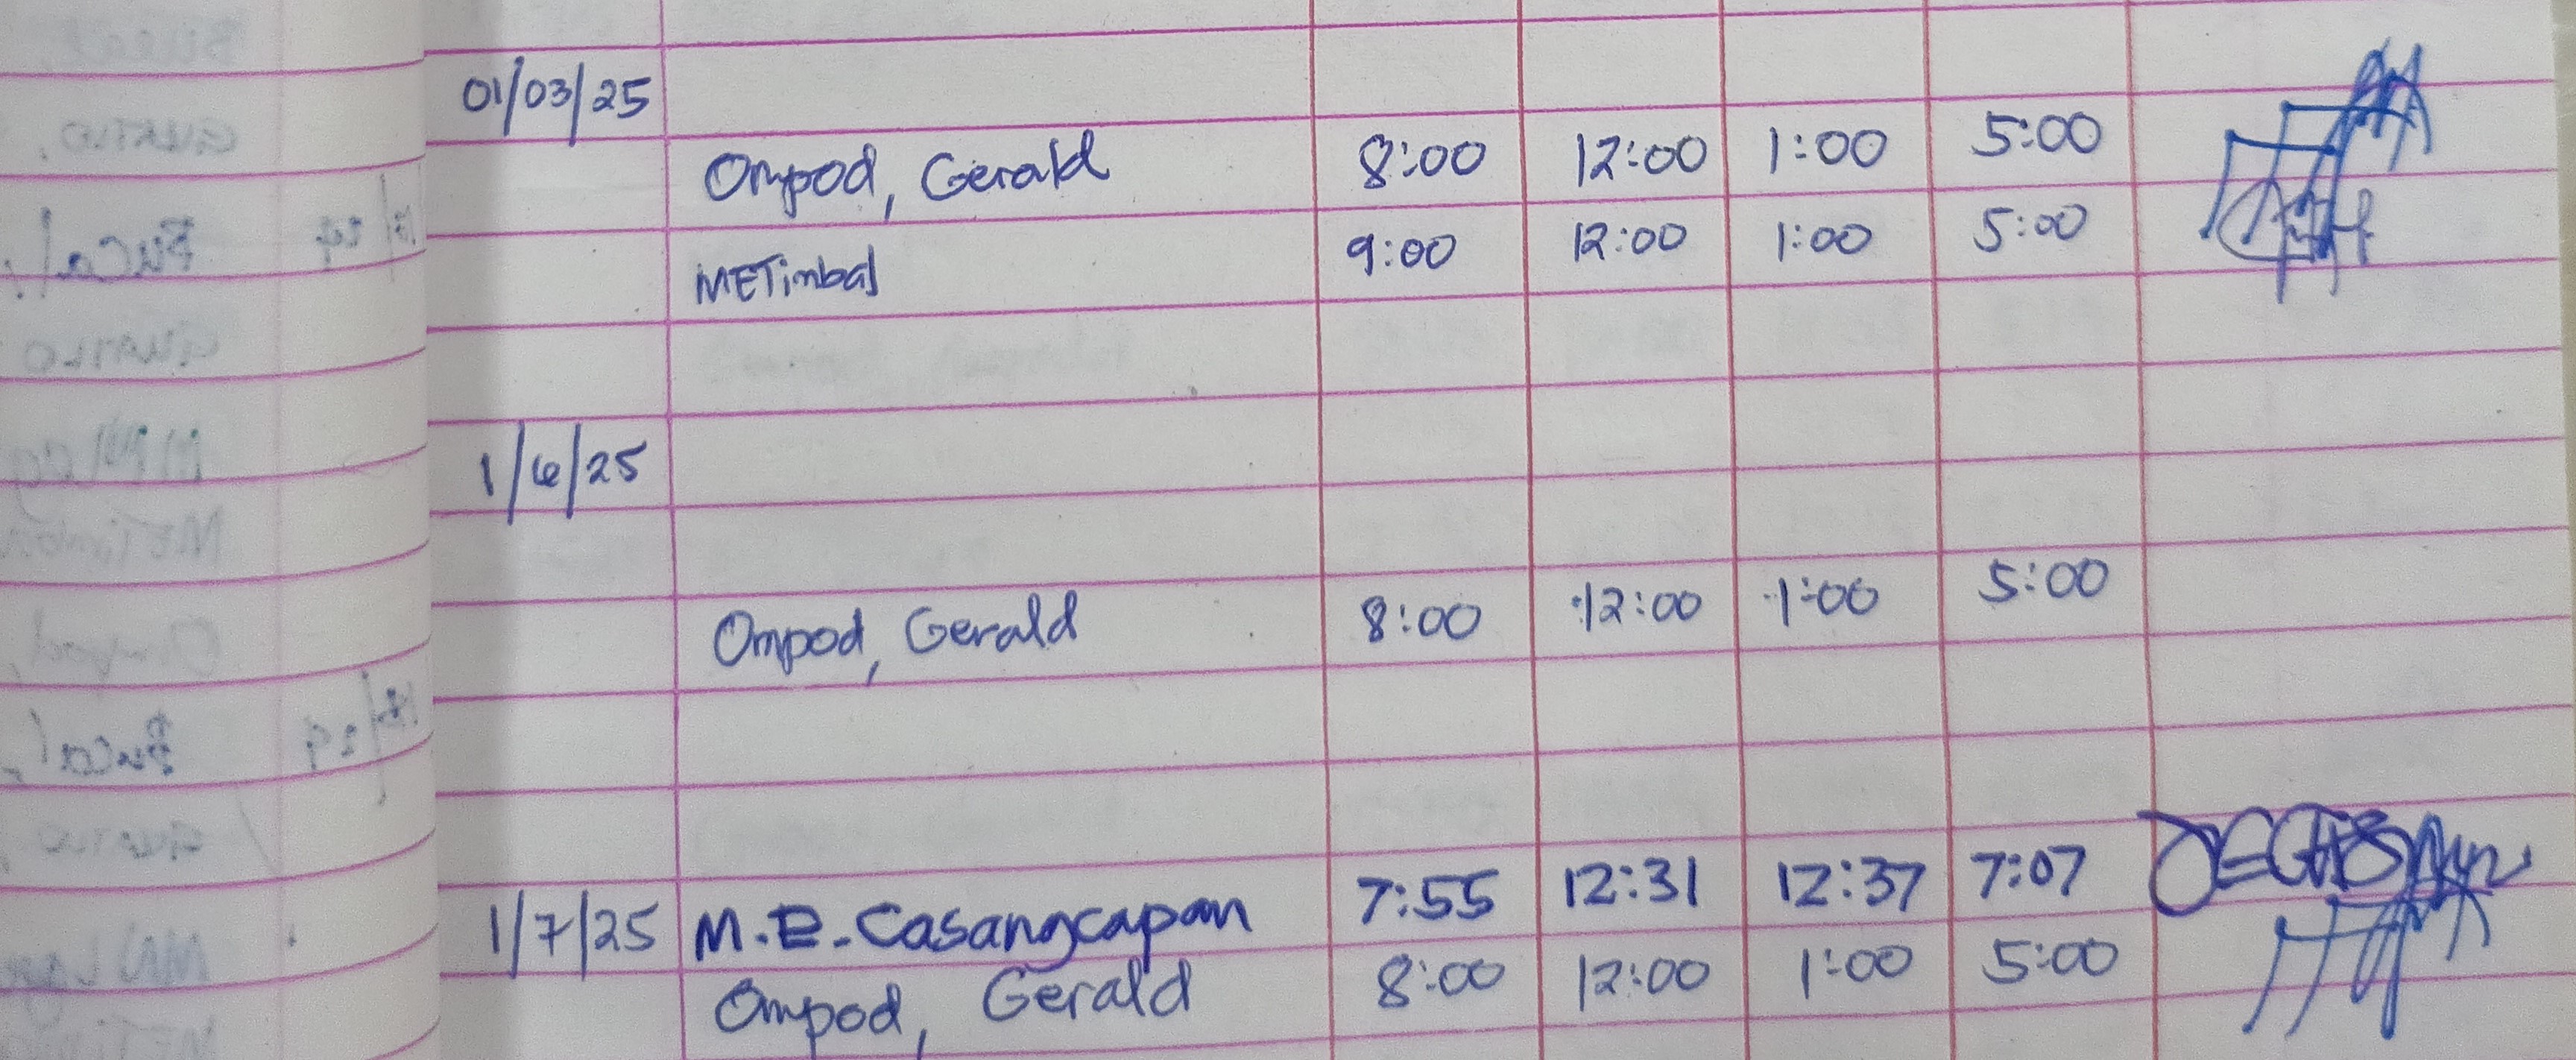 01/03/25
Ompod, Gerald 8:00 12:00 1:00 5:00
METimbal 9:00 12:00 1:00 5:00
1/6/25
Ompod, Gerald 8:00 12:00 1:00 5:00
1/7/25 M.E. Casangcapan 7:55 12:31 12:37 7:07
Ompod, Gerald 8:00 12:00 1:00 5:00